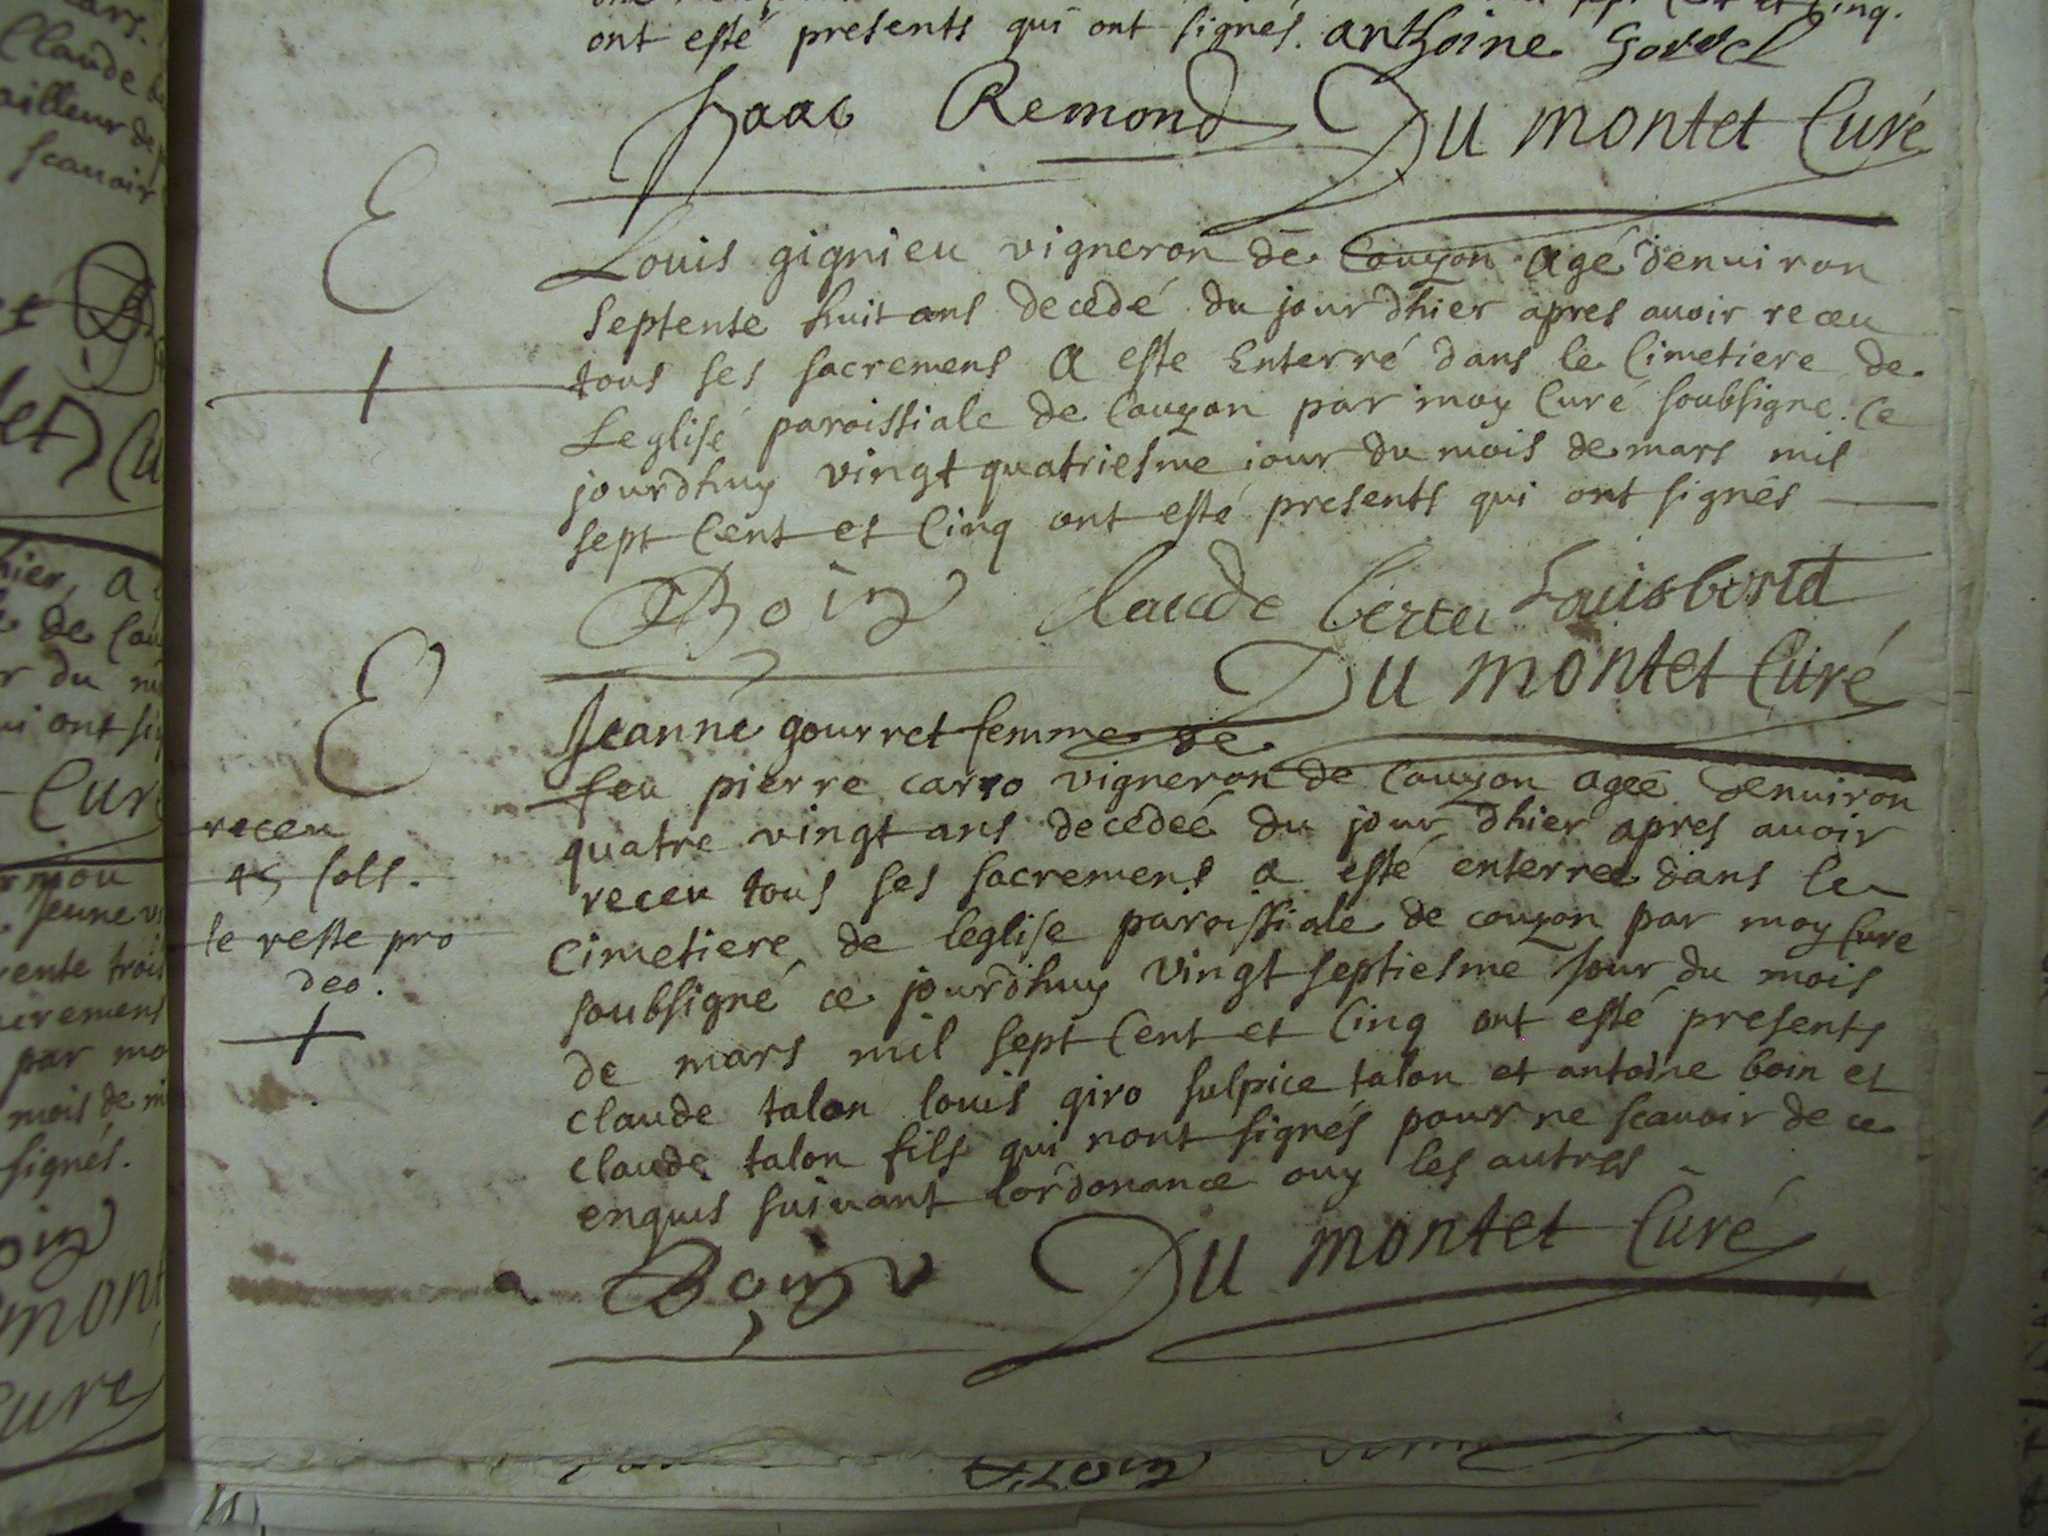 ont esté presents qui ont signés. anthoine
Isaac Remond Du montet Curé
E
Louis gignieu vigneron de Couzon agé denuiron
septente huit ans decedé du jour dhier apres auoir receu
tous ses sacremens a este Enterré dans le Cimetiere de
Leglise paroissiale de Couzon par moy Curé soubsigne. Ce
jourdhuy vingt quatriesme jour du mois de mars mil
sept Cent et Cinq ont esté presents qui ont signés
Boin Claude
Du montet Curé
E
Jeanne gourret femme de
feu pierre carro vigneron de Couzon ageé denuiron
quatre vingt ans decedeé du jour dhier apres auoir
receu tous ses sacremens a esté enterreé dans le
Cimetiere de leglise paroissiale de couzon par moy Cure
soubsigné ce jourdhuy vingt septiesme Jour du mois
de mars mil sept Cent et Cinq ont esté presents
claude talon louis giro sulpice talon et antoine boin et
claude talon fils qui nont signés pour ne scauoir de ce
enquis suiuant lordonance ouy les autres
Boin Du montet Curé
receu
sols.
le reste pro
deo.
Claude
scauoir
de
du
ont
Cur
Jeune
trois
par
mois de
signés.